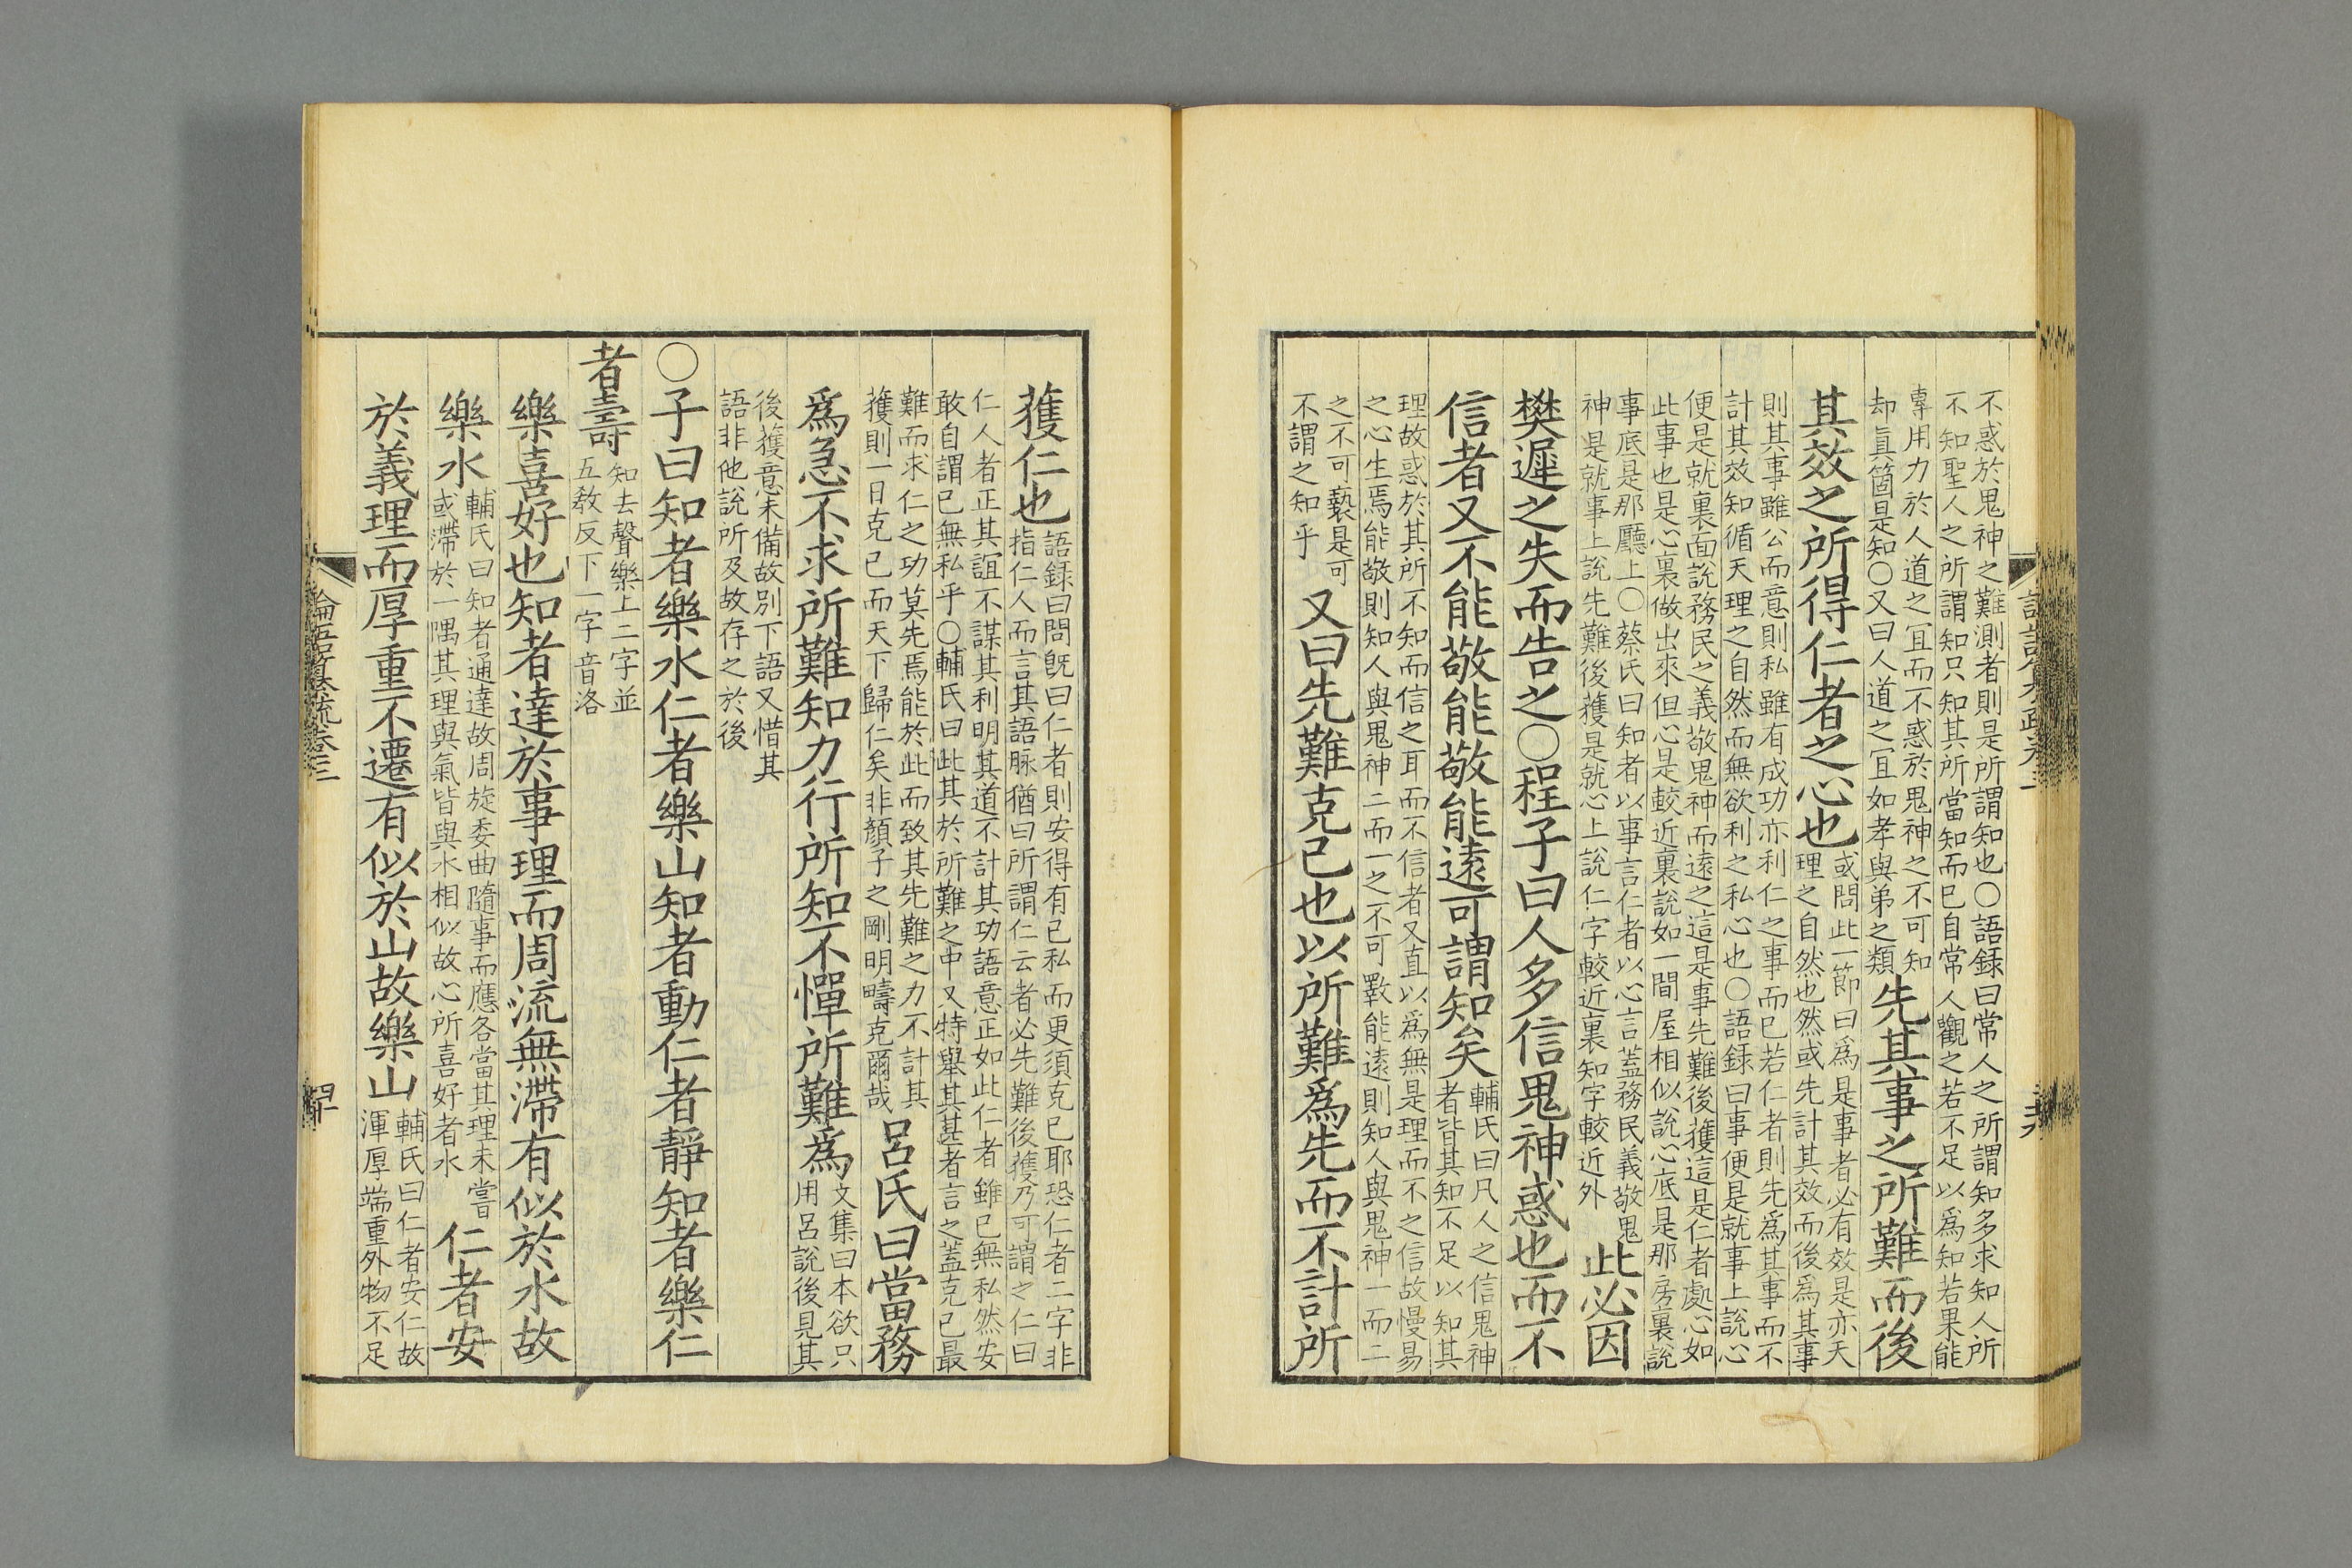 不惑於鬼神之難測者則是所謂知也○語録曰常人之所謂知多求知人所
不知聖人之所謂知只知其所當知而已自常人觀之若不足以爲知若果能
專用力於人道之冝而不惑於鬼神之不可知
却眞箇是知○又曰人道之冝如孝與弟之類
先其事之所難而後
其效之所得仁者之心也
或問此一節曰爲是事者必有效是亦天
理之自然也然或先計其效而後爲其事
則其事雖公而意則私雖有成功亦利仁之事而已若仁者則先爲其事而不
計其效知循天理之自然而無欲利之私心也○語録曰事便是就事上說心
便是就裏面說務民之義敬鬼神而遠之這是事先難後獲這是仁者處心如
此事也是心裏做出來但心是較近裏說如一間屋相似說心底是那房裏說
事底是那廳上○蔡氏曰知者以事言仁者以心言蓋務民義敬鬼
神是就事上說先難後獲是就心上說仁字較近裏知字較近外
此必因
樊遲之失而告之○程子曰人多信鬼神惑也而不
信者又不能敬能敬能遠可謂知矣
輔氏曰凡人之信鬼神
者皆其知不足以知其
理故惑於其所不知而信之耳而不信者又直以爲無是理而不之信故慢易
之心生焉能敬則知人與鬼神二而一之不可斁能遠則知人與鬼神一而二
之不可褻是可
不謂之知乎
又曰先難克己也以所難爲先而不計所
獲仁也
語録曰問旣曰仁者則安得有已私而更須克已耶恐仁者二字非
指仁人而言其語脉猶曰所謂仁云者必先難後獲乃可謂之仁曰
仁人者正其誼不謀其利明其道不計其功語意正如此仁者雖已無私然安
敢自謂已無私乎○輔氏曰此其於所難之中又特舉其甚者言之蓋克已最
難而求仁之功莫先焉能於此而致其先難之力不計其
獲則一日克已而天下歸仁矣非顏子之剛明疇克爾哉
呂氏曰當務
爲急不求所難知力行所知不憚所難爲
文集曰本欲只
用呂說後見其
後獲意未備故别下語又惜其
語非他說所及故存之於後
○子曰知者樂水仁者樂山知者動仁者靜知者樂仁
者壽
知去聲樂上二字並
五教反下一字音洛
樂喜好也知者達於事理而周流無滯有似於水故
樂水
輔氏曰知者通達故周旋委曲隨事而應各當其理未嘗
或滯於一隅其理與氣皆與水相似故心所喜好者水
仁者安
於義理而厚重不遷有似於山故樂山
輔氏曰仁者安仁故
渾厚端重外物不足
論語纂疏卷三